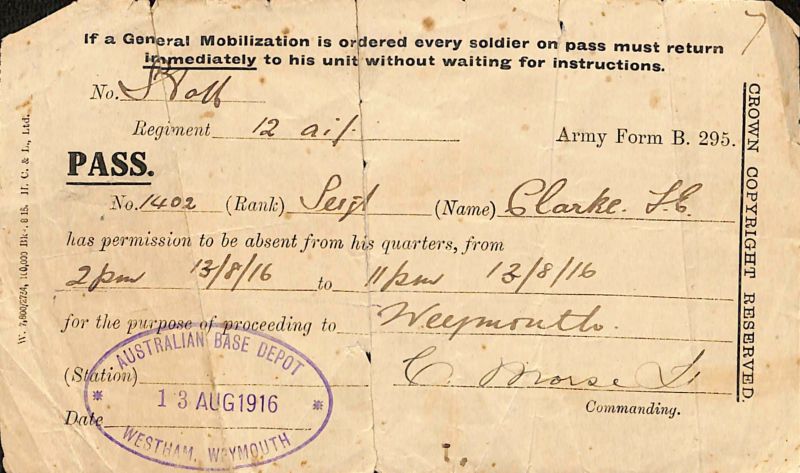 7
If a General Mobilization is ordered every soldier on pass must return
immediately to his unit without waiting for instructions.
No. Staff
Regiment 12 aif.
Army Form B. 295.
PASS.
No. 1402 (Rank) Sergt (Name) Clarke. F.C.
has permission to be absent from his quarters, from
2pm 13/8/16 to 11pm 13/8/16
for the purpose of proceeding to Weymouth.
(Station)
C. Morse Lt
Commanding.
Date
AUSTRALIAN BASE DEPOT
13 AUG 1916
WESTHAM, WEYMOUTH
CROWN COPYRIGHT RESERVED.
110,000 Bks. 6 15. H. C. & L., Ltd.